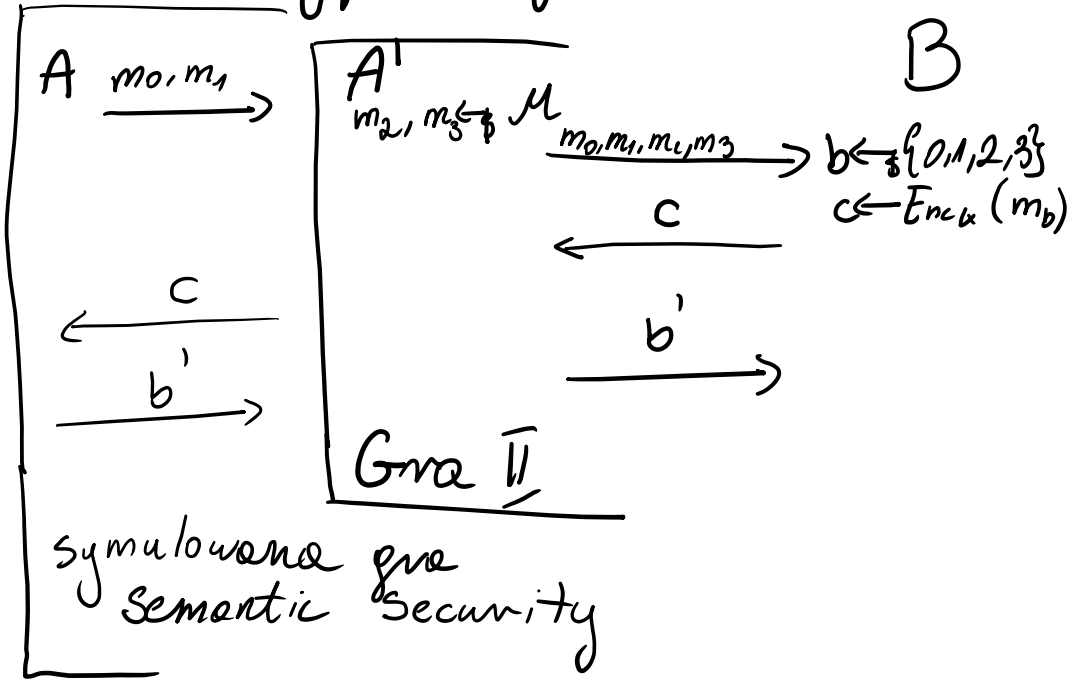 A m0, m1
A'
m2, m3 ←$ M
B
m0, m1, m2, m3
b ←$ {0,1,2,3}
c ← Enc_k (m_b)
c
c
b'
b'
Gra II
symulowana gra
semantic security